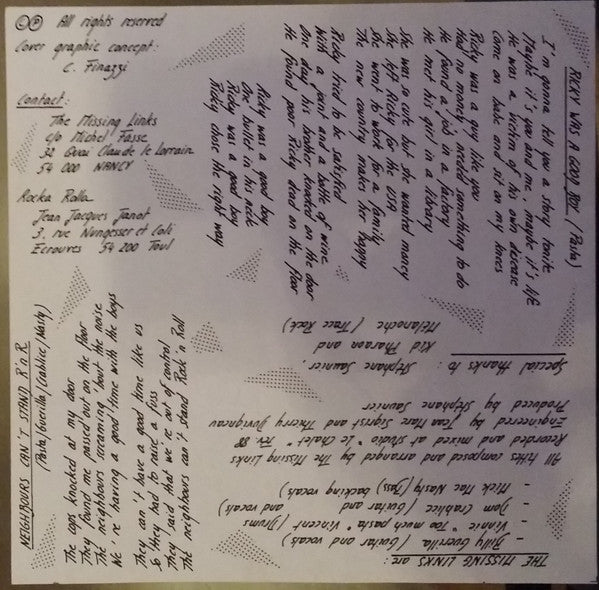 © ℗ All rights reserved
Cover graphic concept:
C. Finazzi
Contact:
The Missing Links
c/o Michel Fasse
32 Quai Claude le Lorrain
54 000 NANCY
Rocka Rolla
Jean Jacques Janot
3, rue Nungesser et Coli
Ecrouves 54 200 Toul
RICKY WAS A GOOD BOY (Pasta)
I'm gonna tell you a story tonite
Maybe it's you and me, maybe it's life
He was a victim of his own disease
Come on babe and sit on my knees
Ricky was a guy like you
Had no money, needed something to do
He found a job in a factory
He met his girl in a library
She was so cute but she wanted money
She left Ricky for the USA
She went to work for a family
The new country makes her happy
Ricky tried to be satisfied
With a joint and a bottle of wine
One day his brother knocked on the door
He found poor Ricky dead on the floor
Ricky was a good boy
One bullet in his neck
Ricky was a good boy
Ricky chose the right way
NEIGHBOURS CAN'T STAND R'n'R
(Pasta/Guerilla/Crablice/Nasty)
The cops knocked at my door
They found me passed out on the floor
The neighbours screaming about the noise
We're having a good time with the boys
They can't have a good time like us
So they had to raise a fuss
They said that we're out of control
The neighbours can't stand Rock'n Roll
THE MISSING LINKS are:
- Billy Guerrilla (Guitar and vocals)
- Vinnie "Too much pasta" Vincent (Drums and vocals)
- Dom Crablice (Guitar and
- Mick Mac Nasty (Bass) backing vocals)
All titles composed and arranged by The Missing Links
Recorded and mixed at studio "Le Chalet" Fev 88
Engineered by Jean Marc Sigrist and Thierry Duvigneau
Produced by Stephane Saunier
Special thanks to: Stephane Saunier,
Kid Pharaon and
Mélanoche (Trace Rock)